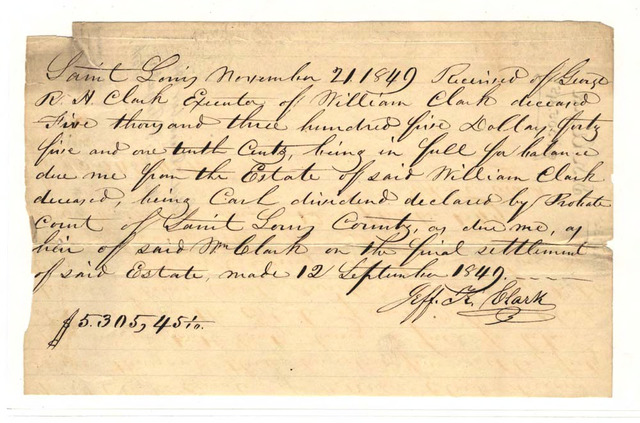 Saint Louis November 21. 1849 Received of George
R. H. Clark Executor of William Clark deceased
Five thousand three hundred five Dollars forty
five and one tenth Cents, being in full for balance
due me from the Estate of said William Clark
deceased, being Cash dividend declared by Probate
court of Saint Louis County, as due me, as
heir of said Wm Clark on the final settlement
of said Estate, made 12 September 1849.
Jeff. K. Clark
$5.305,45 1/10.